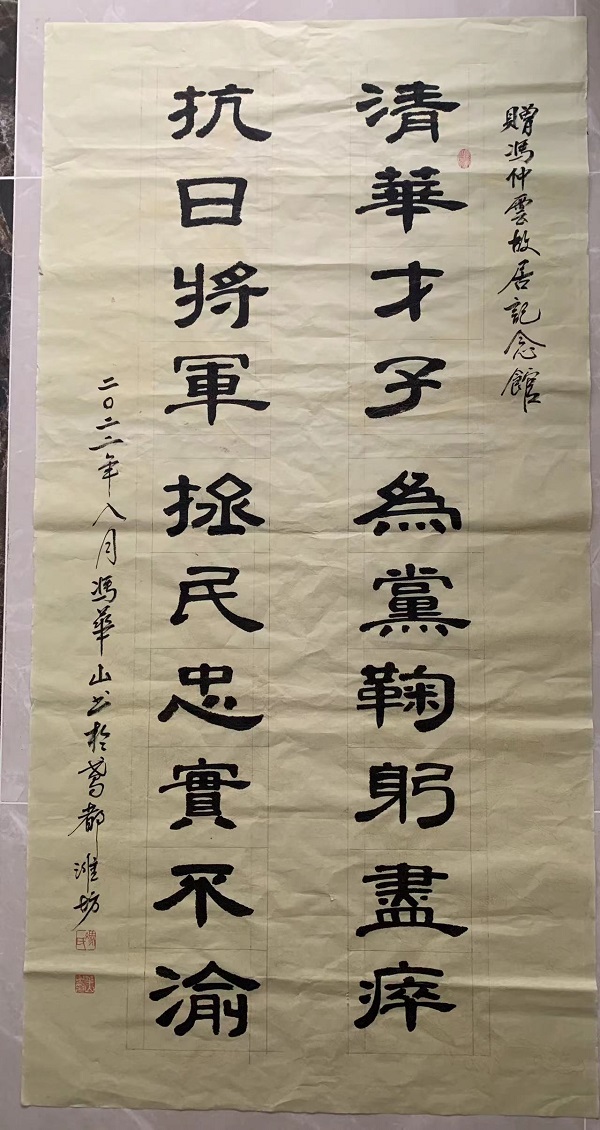 贈馮仲雲故居記念館
清華才子為黨鞠躬盡瘁
抗日將軍拯民忠實不渝
二〇二二年八月馮華山书於鳶都濰坊